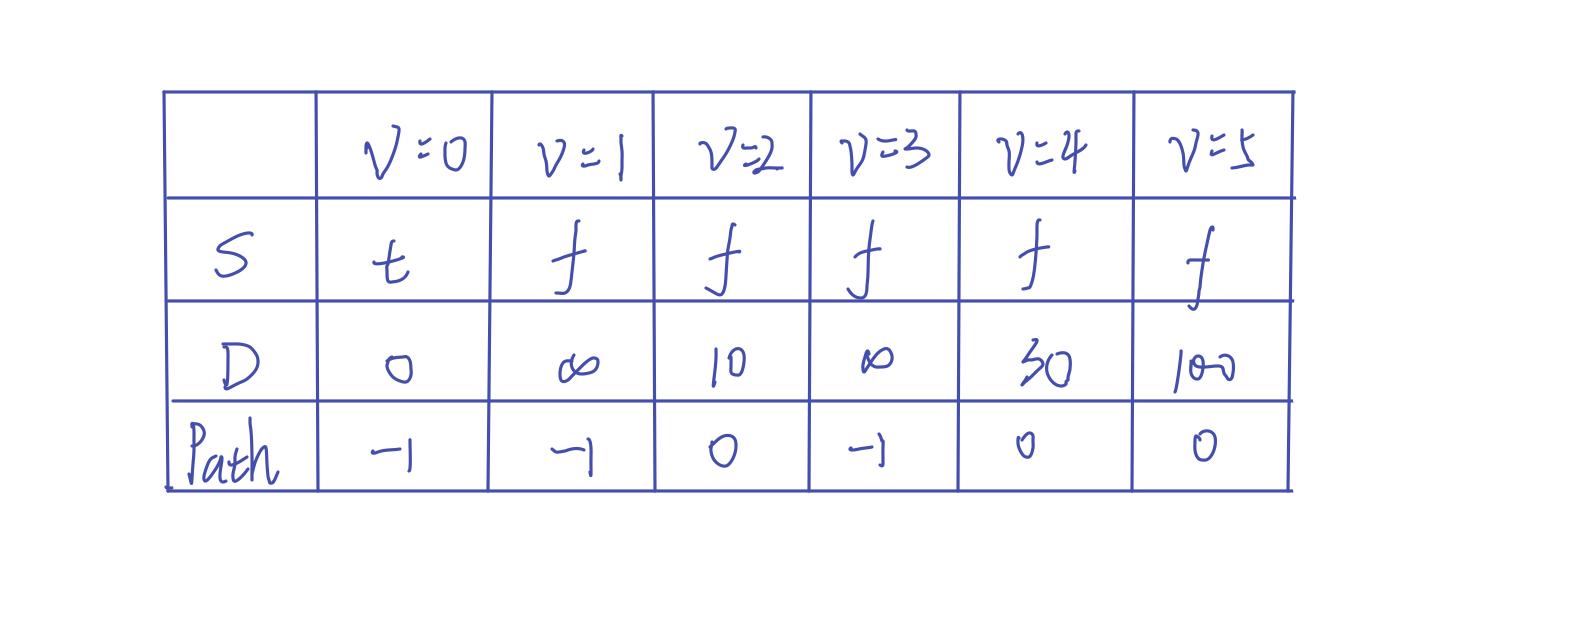 V=0 v=1 V=2 v=3 v=4 v=5
S t f f f f f
D 0 ∞ 10 ∞ 30 100
Path -1 -1 0 -1 0 0